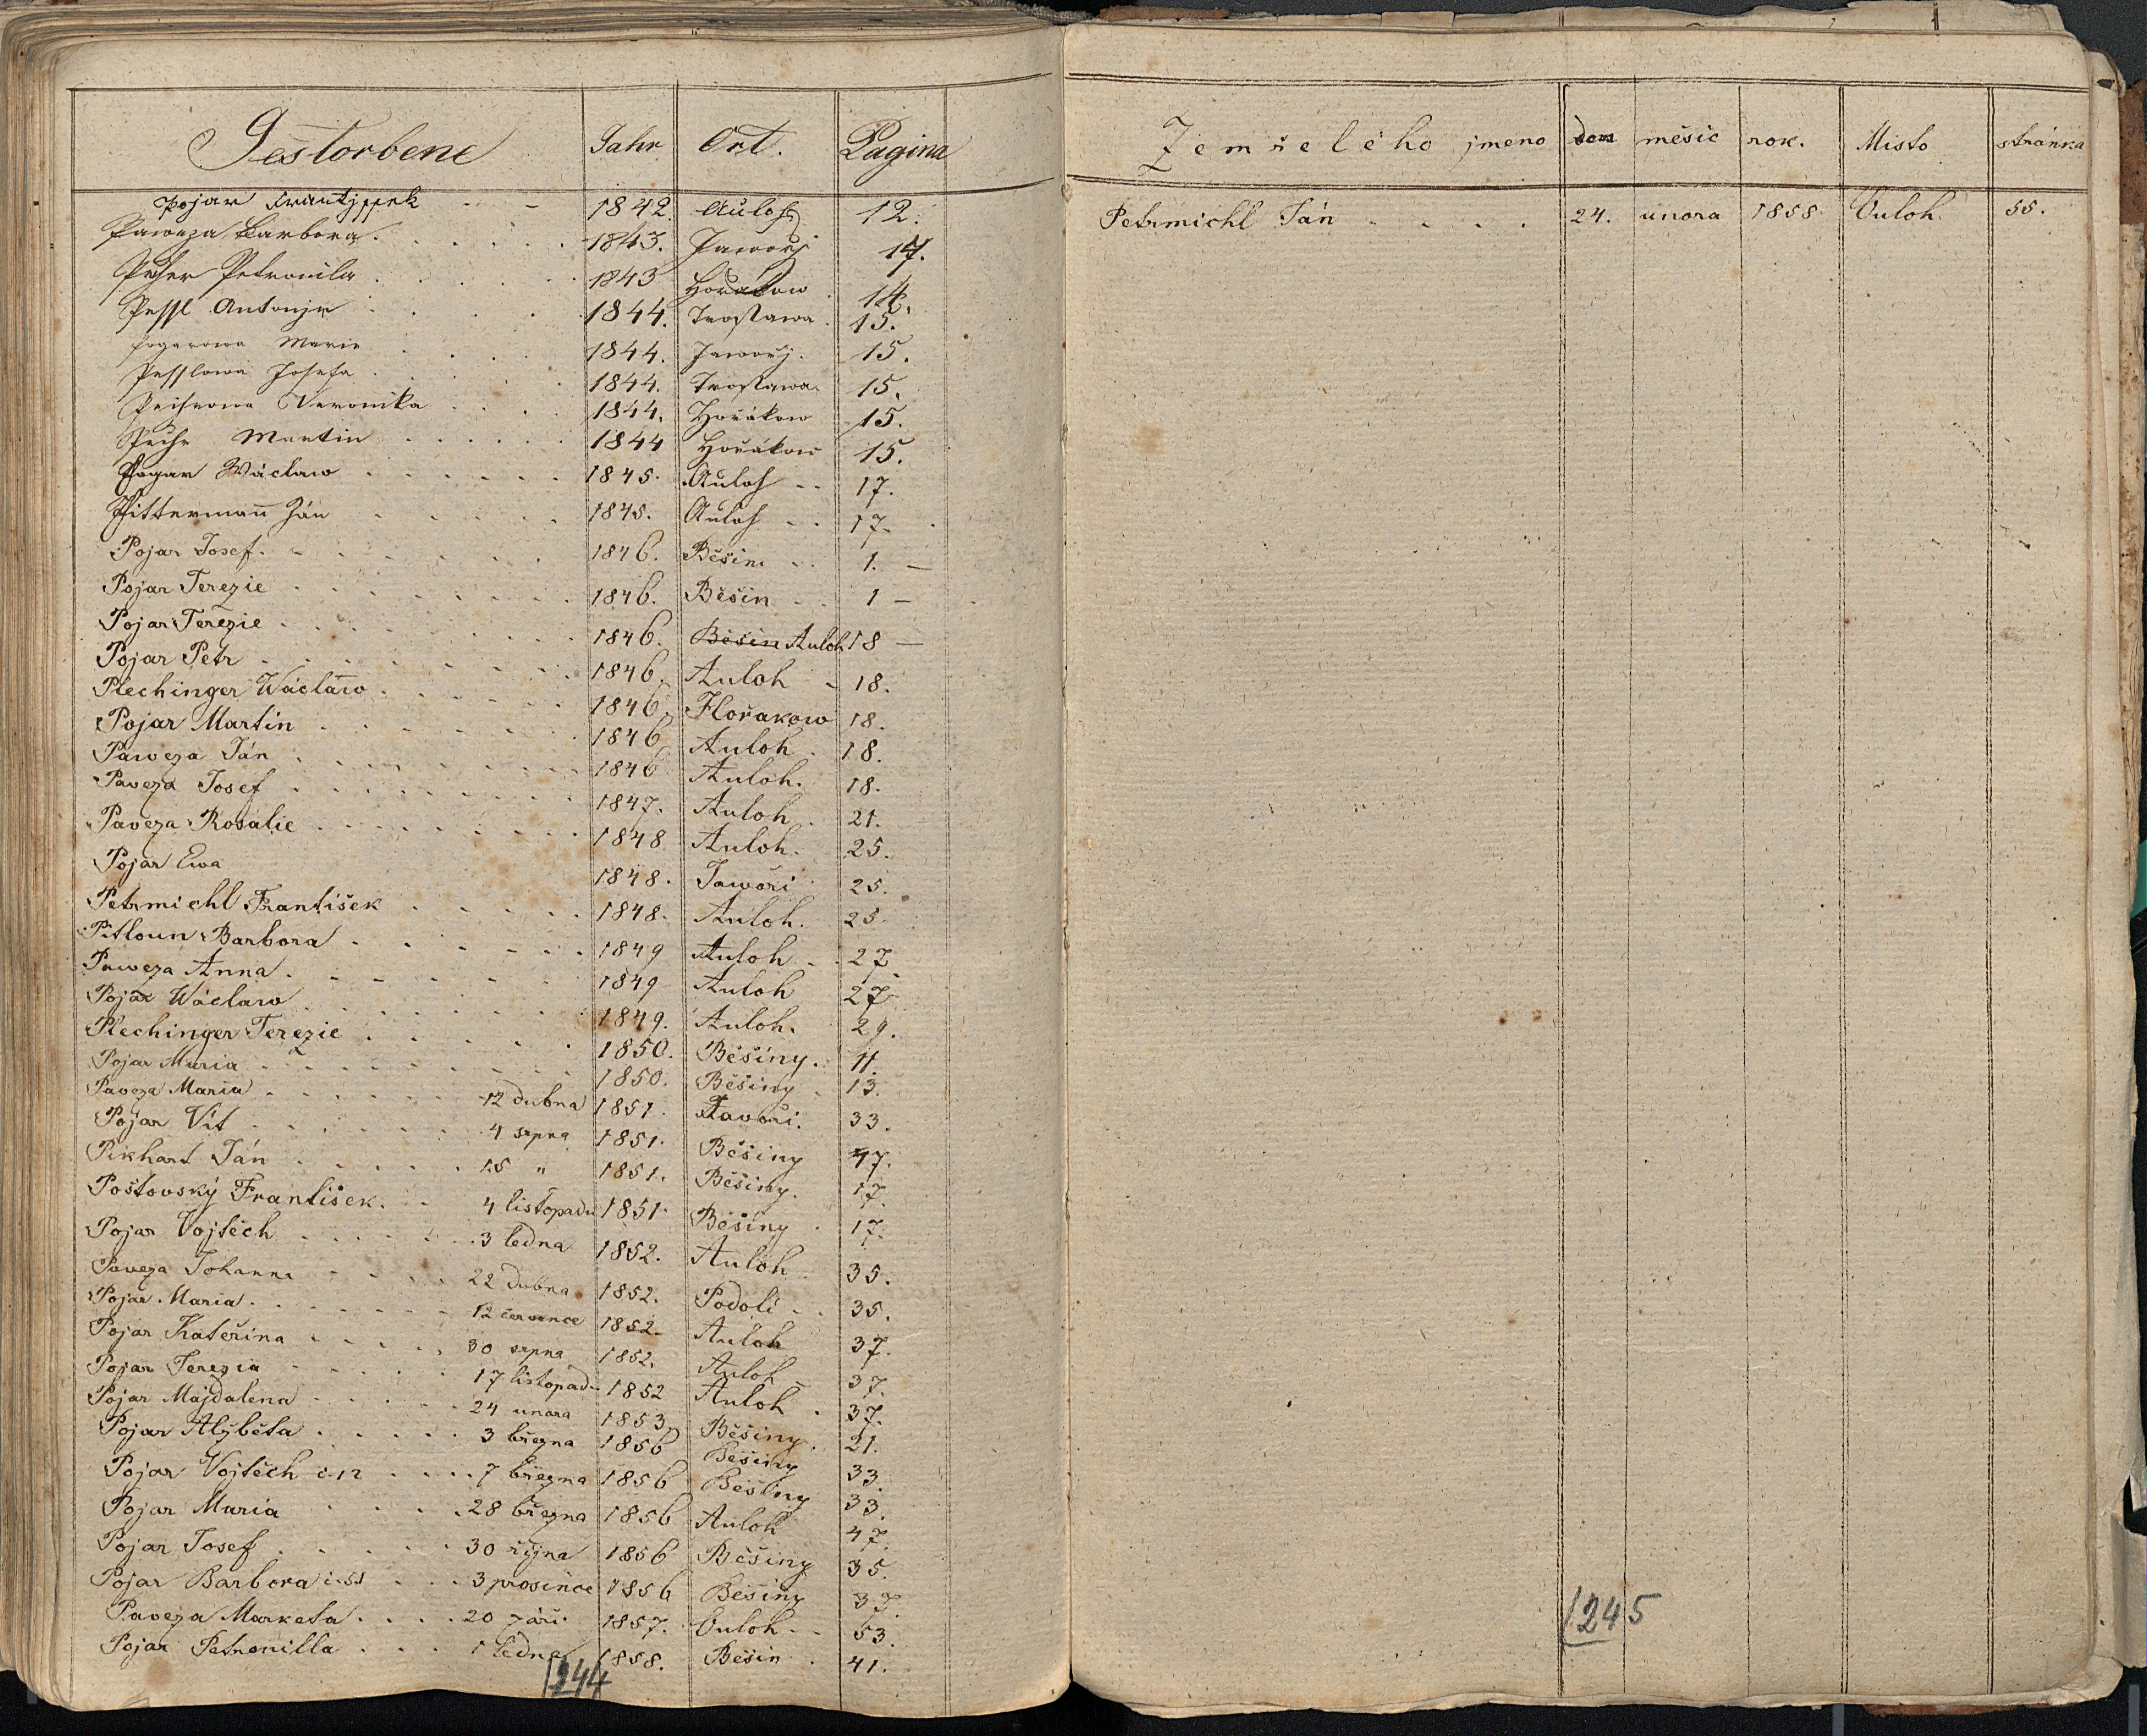 Gestorbene Jahr Ort. Pagina
Pojar Frantjssek - - 1842. Auloh 12.
Paweza Barbora. 1843. Jaworj 17.
Puher Petronila 1843 Horakow 14.
Pessl Antonje 1844. Trostawa. 15.
Pogarowa Marie 1844. Jaworj. 15.
Pesslowa Josefa 1844. Trostawa. 15.
Veronika 1844. Hořákow 15.
Puhr Martin 1844 Hořákow 15.
Pogar Wáclaw 1845. Auloh - - 17.
Pittermann Ján 1845. Auloh - - 17.
Pojar Josef. 1846. Běšin - - 1. -
Pojar Terezie 1846. Běšin - - 1 -
Pojar Terezie 1846. Běšin Auloh 18 -
Pojar Petr 1846. Auloh - 18.
Plechinger Wácláw 1846. Hořakow 18.
Pojar Martin 1846 Auloh. 18.
Paweza Ján 1846 Auloh. 18.
Paveza Josef 1847. Auloh. 21.
Paveza Rosalie 1848 Auloh. 25.
Pojar Ewa 1848. Jawoři 25.
Petrmichl František 1848. Auloh. 25.
Pitloun Barbora 1849 Auloh - 27
Paweza Anna. 1849 Auloh 27
Pojar Wáclaw 1849. Auloh. 29.
Plechinger Terezie 1850. Běšiny. 11.
Pojar Maria 1850. Běšiny 13.
Paveza Maria 12 dubna 1851. Javoři. 33.
Pojar Vít 4 srpna 1851. Běšiny 47.
Pikhart Ján 15 " 1851. Běšiny. 17.
Poštovský František. 4 listopadu 1851. Běšiny 17.
Pojar Vojtěch 3 ledna 1852. Auloh 35.
Paveza Johanna 22 dubna 1852. Podolí - 35.
Pojar Maria. 12 července 1852. Auloh 37.
Pojar Kateřina 30 srpna 1852. Auloh - 37.
Pojar Terezia 17 listopad. 1852 Auloh. 37.
Pojar Majdalena 24 unora 1853 Běšiny. 21.
Pojar Alžběta 3 března 1856 Běšiny 33.
Pojar Vojtěch č. 12 7 března 1856 Běšiny 33.
Pojar Maria 28 března 1856 Auloh 47.
Pojar Josef 30 října 1856 Běšiny 35.
Pojar Barbora č. 51 3 prosince 1856 Běšiny 37.
Paveza Marketa 20 září 1857. Ouloh - - 53.
Pojar Petronilla 1 ledna 1858. Běšin 41.
244
Zemřelého jmeno den měsic rok. Misto stránka
Petrmichl Ján 24. unora 1858. Ouloh 55.
245